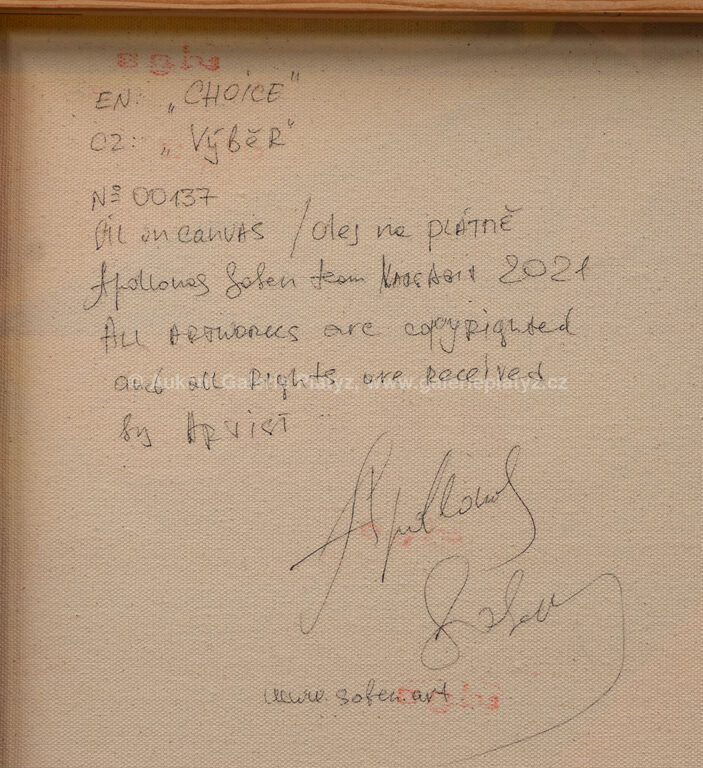 EN: „CHOICE"
CZ: „VÝBĚR"
Nº 00137
OIL on CANVAS / Olej na PLÁTNĚ
Apollonas Soben team 2021
ALL ARTWORKS are copyrighted
and all Rights are Received
© Aukční Galerie Platýz, www.galerieplatyz.cz
by ARTIST
Apollonas
Soben
www.soben.art